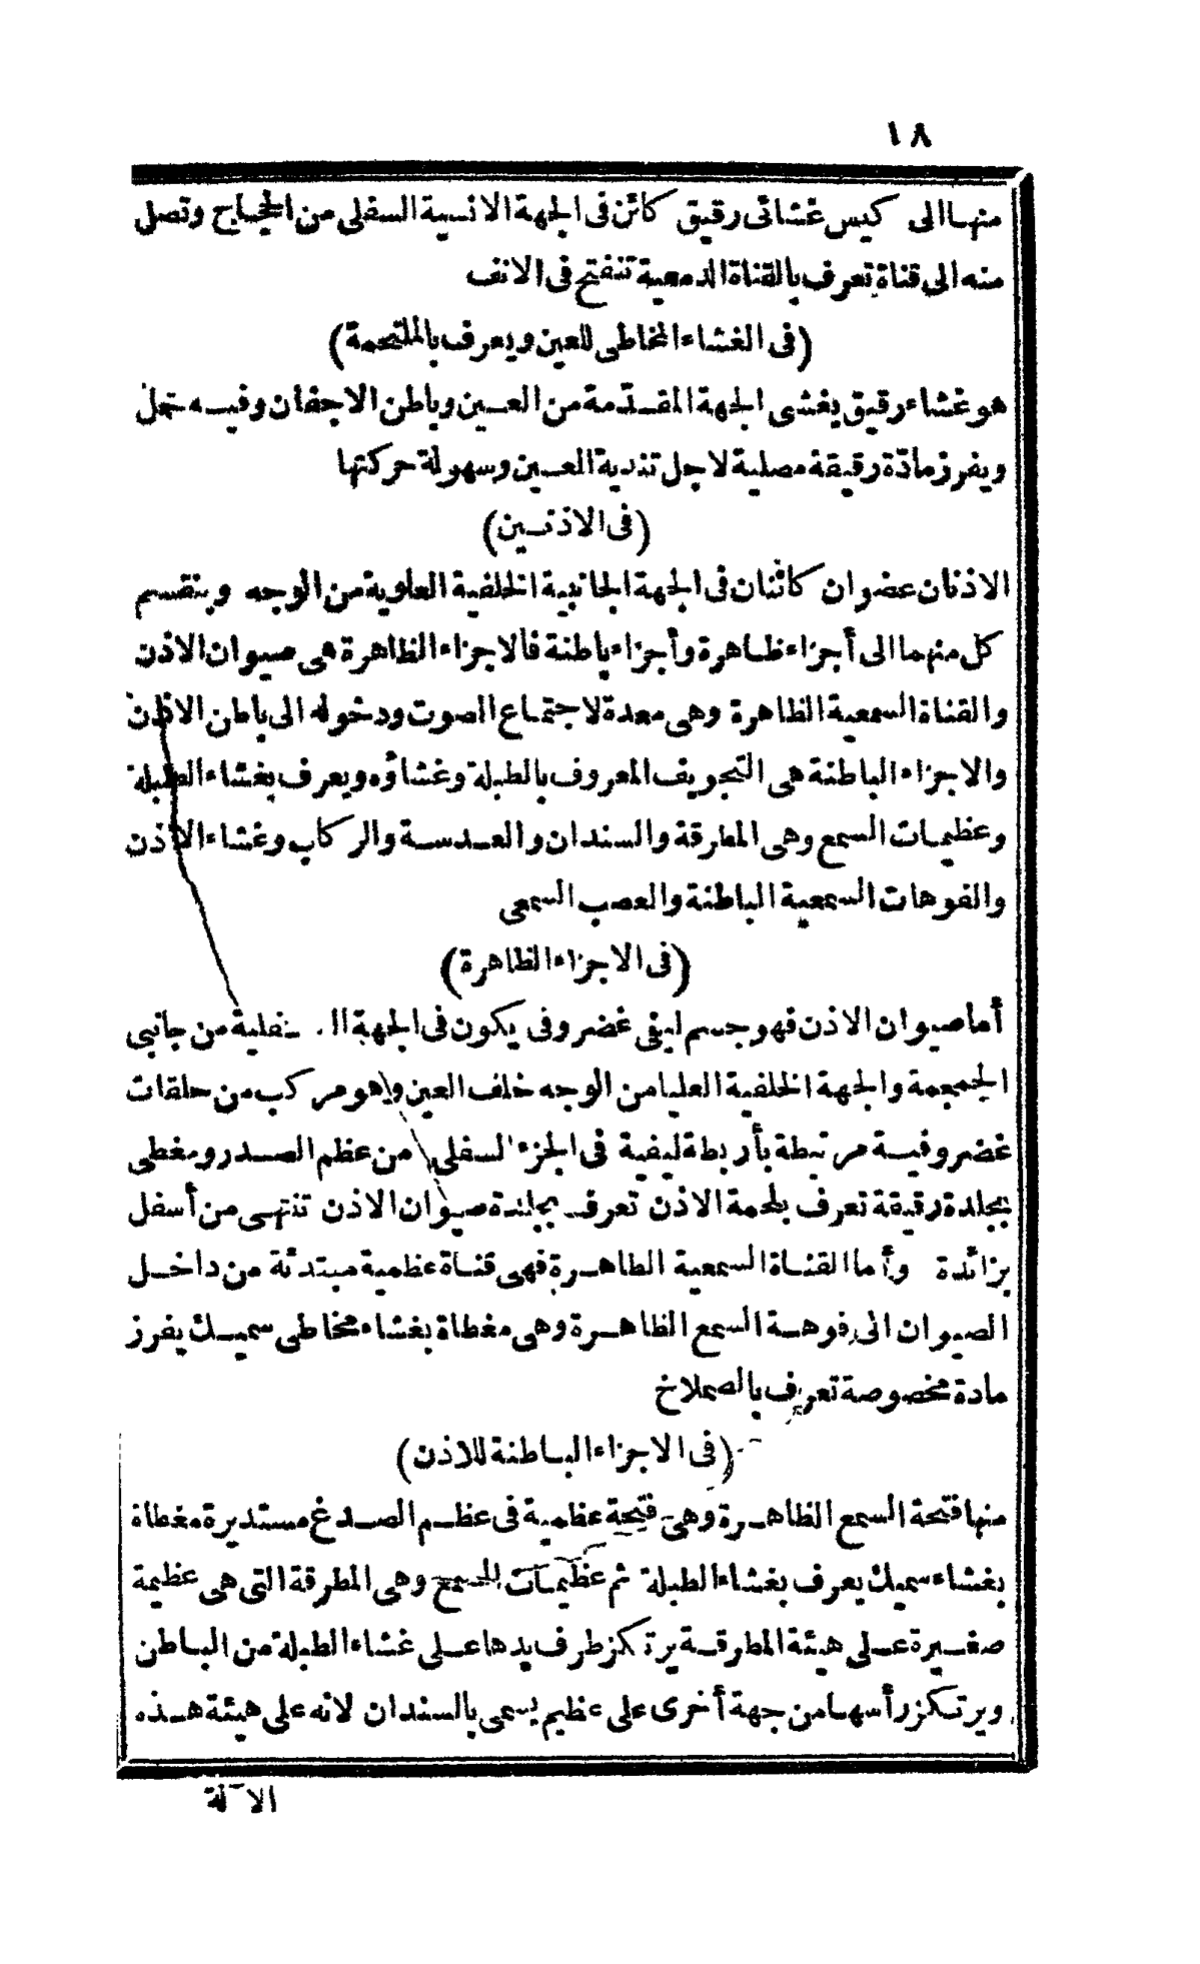 ١٨
منها الى كيس غشائى رقيق كائن فى الجهة الانسية السفلى من الحجاج وتصل
منه الى قناة تعرف بالقناة الدمعية تنفتح فى الانف
(فى الغشاء المخاطى للعين ويعرف بالملتحمة)
هو غشاء رقيق يغشى الجهة المقدّمة من العين وباطن الاجفان وفيه خمل
ويفرز مادّة رقيقة مصلية لاجل تندية العين وسهولة حركتها
(فى الاذنين)
الاذنان عضوان كائنان فى الجهة الجانبية الخلفية العلوية من الوجه وينقسم
كل منهما الى أجزاء ظاهرة وأجزاء باطنة فالاجزاء الظاهرة هى صيوان الاذن
والقناة السمعية الظاهرة وهى معدة لاجتماع الصوت ودخوله الى باطن الاذن
والاجزاء الباطنة هى التجويف المعروف بالطبلة وغشاؤه ويعرف بغشاء الطبلة
وعظيمات السمع وهى المطرقة والسندان والعدسة والركاب وغشاء الاذن
والفوهات السمعية الباطنة والعصب السمعى
(فى الاجزاء الظاهرة)
أما صيوان الاذن فهو جسم ليفى غضروفى يكون فى الجهة من جانبى
الجمجمة والجهة الخلفية العليا من الوجه خلف العين وهو مركب من حلقات
غضروفية مرتبطة بأربطة ليفية فى الجزء السفلى من عظم الصدر ومغطى
بجلدة رقيقة تعرف بلحمة الاذن تعرف بجلدة صيوان الاذن تنتهى من أسفل
بزائدة وأما القناة السمعية الظاهرة فهى قناة عظمية مبتدئة من داخل
الصيوان الى فوهة السمع الظاهرة وهى مغطاة بغشاء مخاطى سميك يفرز
مادة مخصوصة تعرف بالصملاخ
(فى الاجزاء الباطنة للاذن)
منها فتحة السمع الظاهرة وهى فتحة عظمية فى عظم الصدغ مستديرة مغطاة
بغشاء سميك يعرف بغشاء الطبلة ثم عظيمات السمع وهى المطرقة التى هى عظيمة
صغيرة على هيئة المطرقة يرتكز طرف يدها على غشاء الطبلة من الباطن
ويرتكز رأسها من جهة أخرى على عظيم يسمى بالسندان لانه على هيئة هذه
الآلة